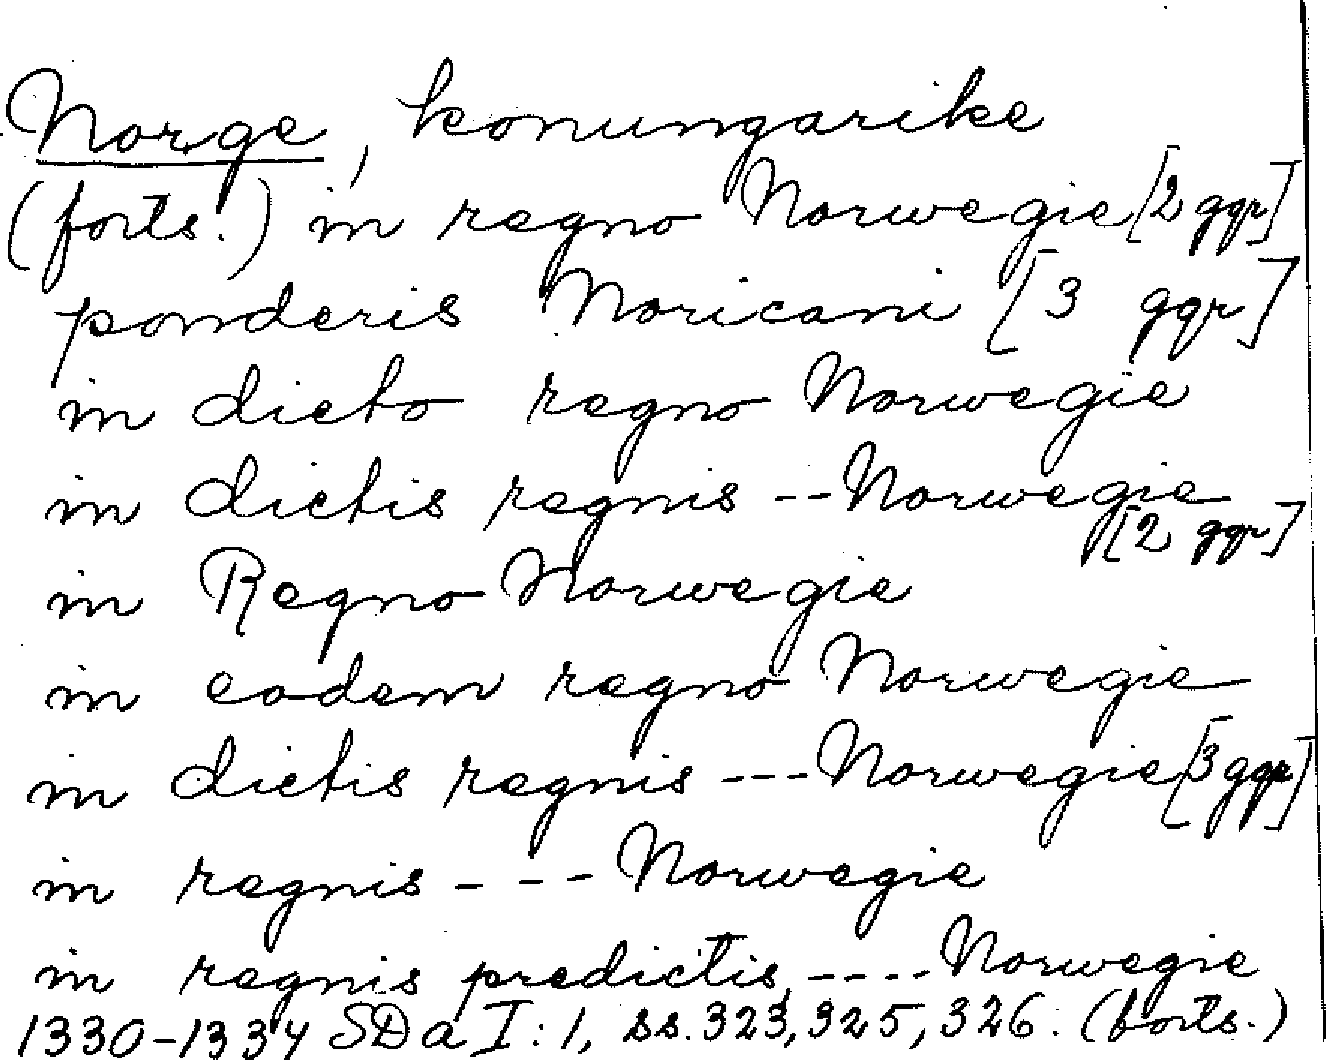 Norge, konungarike
(forts.) in regno Norwegie [2 ggr]
ponderis Noricani [3 ggr]
in dicto regno Norwegie
in dictis regnis -- Norwegie
[2 ggr]
in Regno Norwegie
in eodem regno Norwegie
in dictis regnis --- Norwegie [3 ggr]
in regnis --- Norwegie
in regnis predictis ---- Norwegie
1330-1334 SD a I:1, ss. 323, 325, 326. (forts.)